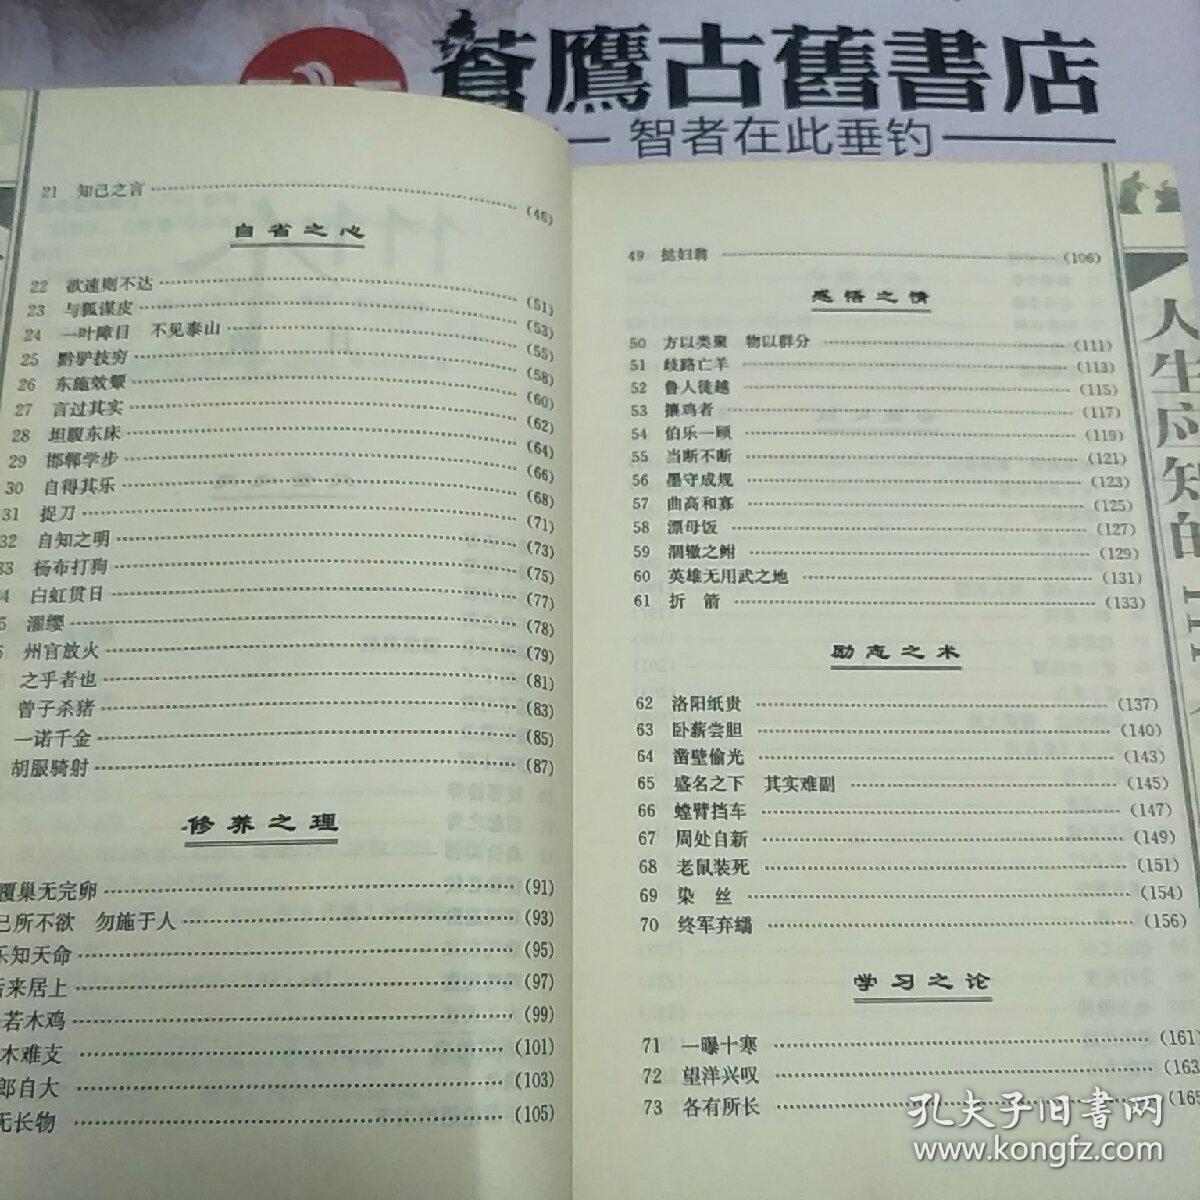 蒼鷹古舊書店
智者在此垂钓
21 知己之言 (46)
自省之心
22 欲速则不达 (51)
23 与狐谋皮 (53)
24 一叶障目 不见泰山 (55)
25 黔驴技穷 (58)
26 东施效颦 (60)
27 言过其实 (62)
28 坦腹东床 (64)
29 邯郸学步 (66)
30 自得其乐 (68)
31 捉刀 (71)
32 自知之明 (73)
33 杨布打狗 (75)
4 白虹贯日 (77)
5 濯缨 (78)
6 州官放火 (79)
之乎者也 (81)
曾子杀猪 (83)
一诺千金 (85)
胡服骑射 (87)
修养之理
覆巢无完卵 (91)
己所不欲 勿施于人 (93)
乐知天命 (95)
后来居上 (97)
若木鸡 (99)
木难支 (101)
郎自大 (103)
无长物 (105)
49 挞妇翁 (106)
感悟之情
50 方以类聚 物以群分 (111)
51 歧路亡羊 (113)
52 鲁人徒越 (115)
53 攘鸡者 (117)
54 伯乐一顾 (119)
55 当断不断 (121)
56 墨守成规 (123)
57 曲高和寡 (125)
58 漂母饭 (127)
59 涸辙之鲋 (129)
60 英雄无用武之地 (131)
61 折箭 (133)
励志之术
62 洛阳纸贵 (137)
63 卧薪尝胆 (140)
64 凿壁偷光 (143)
65 盛名之下 其实难副 (145)
66 螳臂挡车 (147)
67 周处自新 (149)
68 老鼠装死 (151)
69 染丝 (154)
70 终军弃繻 (156)
学习之论
71 一曝十寒 (161)
72 望洋兴叹 (163
73 各有所长 (165
人生应知的
孔夫子旧书网
www.kongfz.com